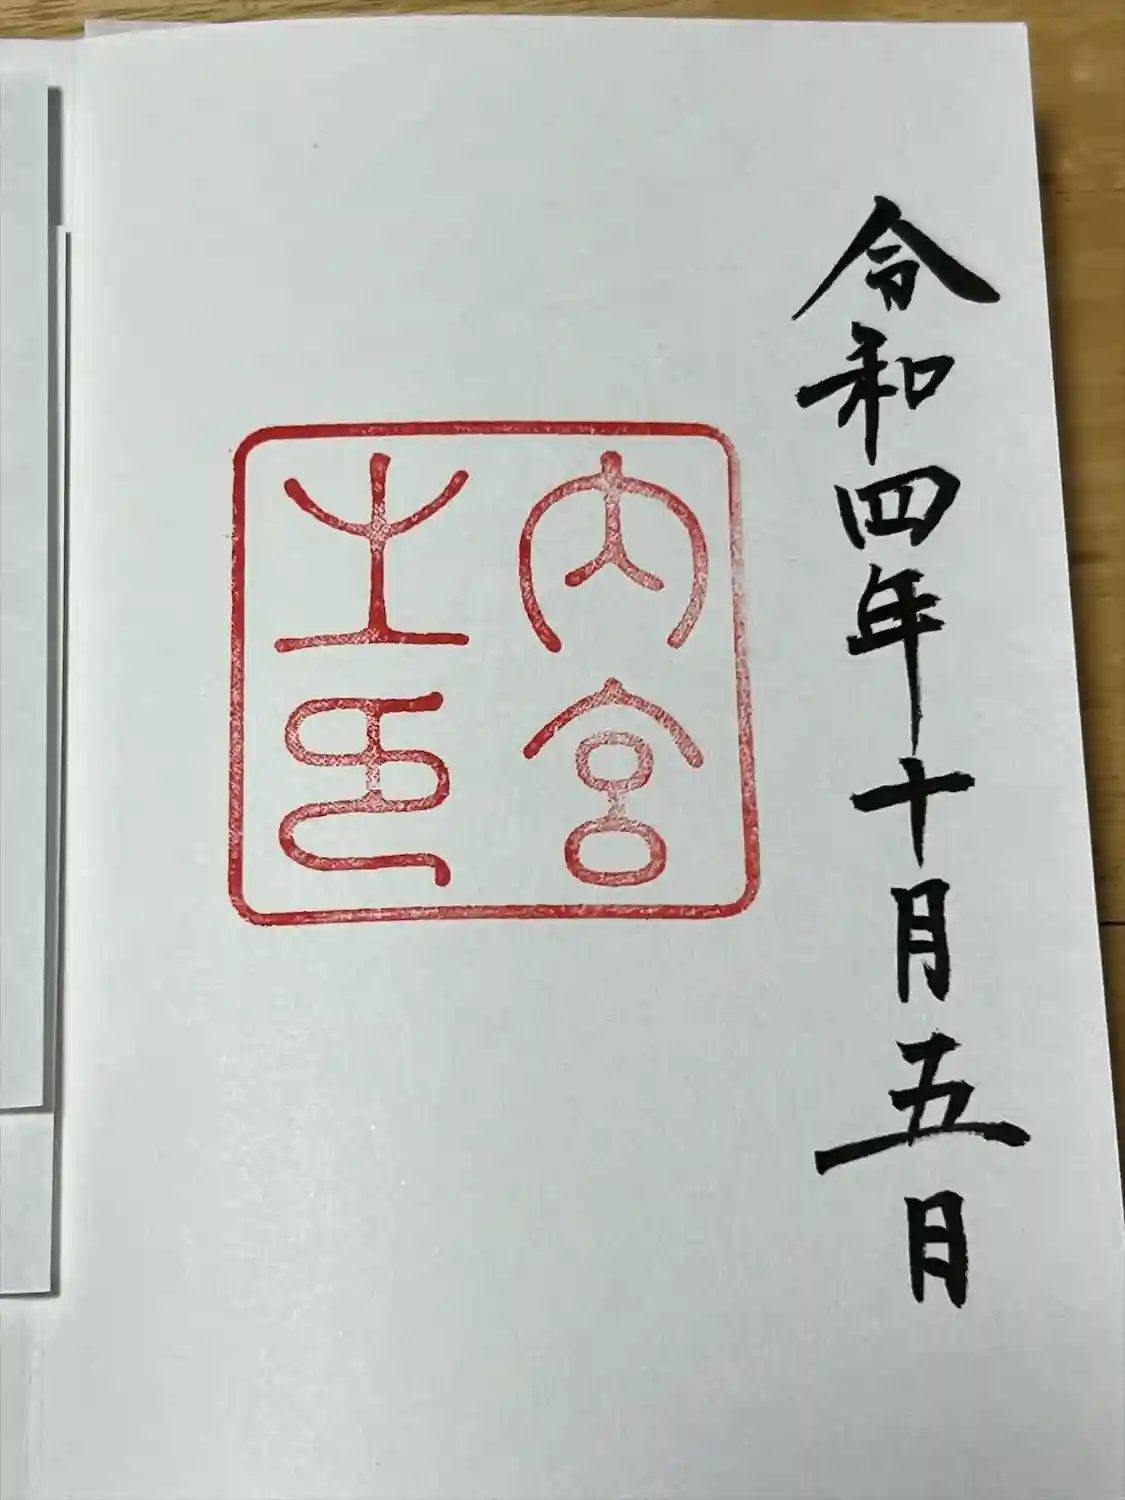 令和四年十月五日
内宮
之印